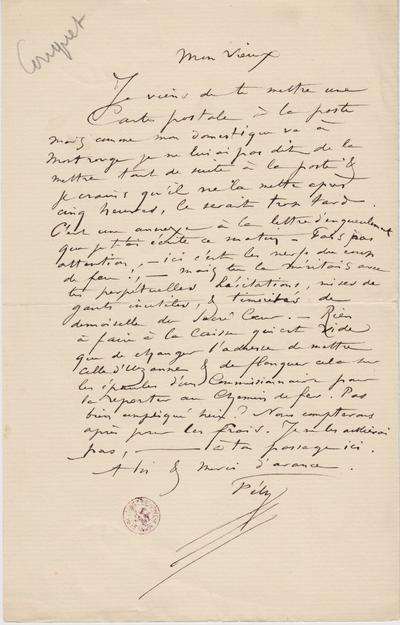 Conquet
Mon vieux
Je viens de te mettre une
Carte postale à la poste
mais comme mon domestique va à
Montrouge je ne lui ai pas dit de la
mettre tout de suite à la poste &
je crains qu'il ne la mette après
cinq heures, ce serait trop tard.
C'est une annexe à la lettre d'engueulement
que je t'ai écrite ce matin – Fais pas
attention, – ici c'est les nerfs du coup
de feu!, – mais tu la méritais avec
tes perpétuelles hésitations, mises de
gants inutiles, & timidités de
demoiselle du Sacré Cœur. – Rien
à faire à la Caisse qui est vide
que de changer l'adresse de mettre
celle d'Uzanne & de flanquer cela sur
les épaules d'un Commissionnaire pour
la reporter au Chemin de fer. Pas
bien compliqué hein? Nous compterons
après pour les frais. Je ne les
pas, — à ton passage ici.
A toi & merci d'avance.
Fély